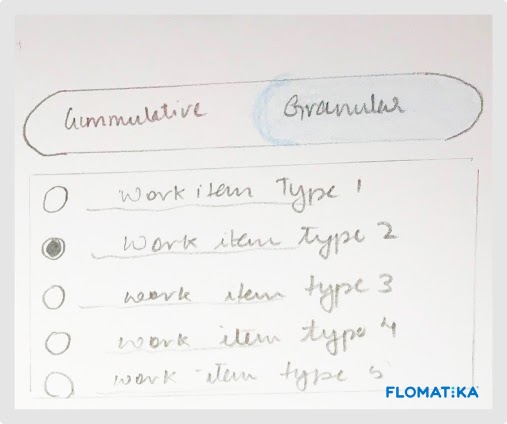 Cummulative Granular
Work item Type 1
Work item type 2
work item type 3
work item type 4
work item type 5
FLOMATIKA